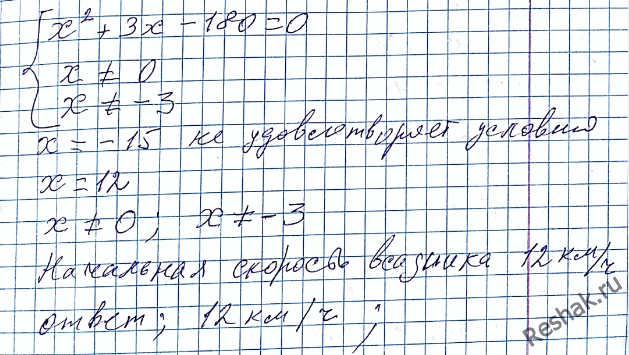 x² + 3x - 180 = 0
x ≠ 0
x ≠ -3
x = -15 не удовлетворяет условию
x = 12
x ≠ 0; x ≠ -3
Начальная скорость всадника 12 км/ч
ответ; 12 км/ч;
Reshak.ru